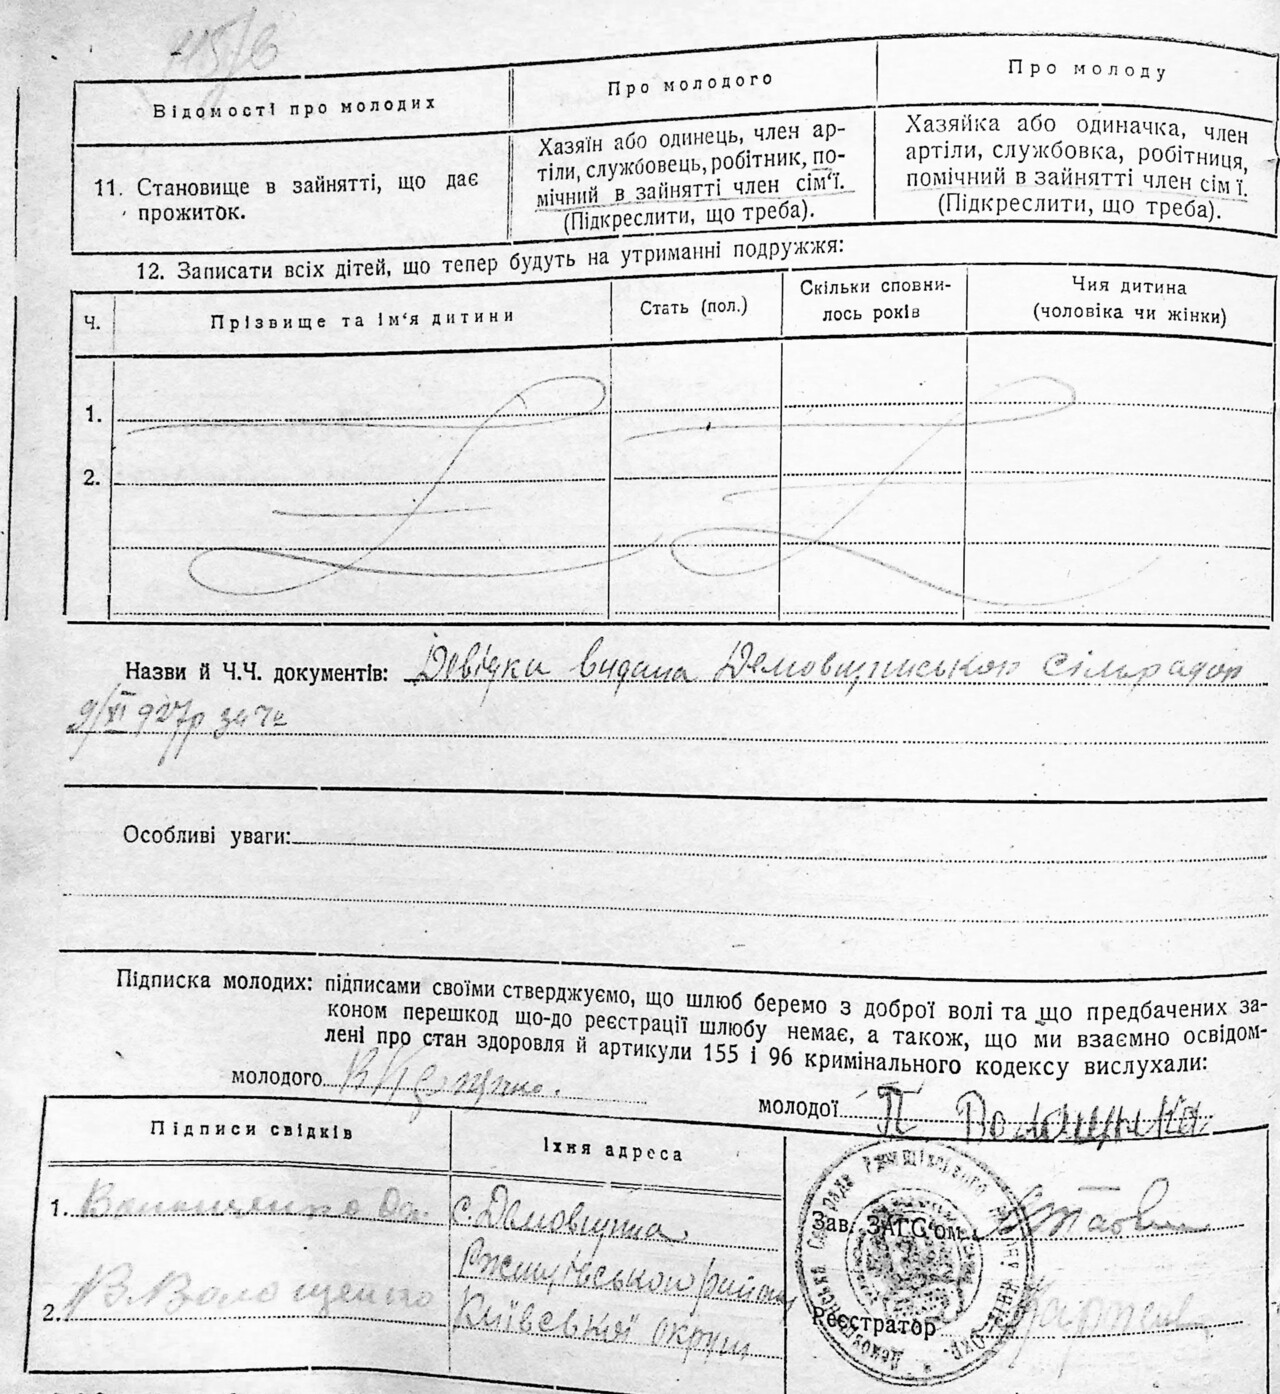 115/6
Відомості про молодих
Про молодого
Про молоду
11. Становище в зайнятті, що дає
прожиток.
Хазяїн або одинець, член ар-
тіли, службовець, робітник, по-
мічний в зайнятті член сім'ї.
(Підкреслити, що треба).
Хазяйка або одиначка, член
артіли, службовка, робітниця,
помічний в зайнятті член сім ї.
(Підкреслити, що треба).
12. Записати всіх дітей, що тепер будуть на утриманні подружжя:
Ч.
Прізвище та ім'я дитини
Стать (пол.)
Скільки сповни-
лось років
Чия дитина
(чоловіка чи жінки)
1.
2.
Назви й Ч.Ч. документів: Довідки видана Демовщинською сільрадою
9/XI 927р
Особливі уваги:
Підписка молодих: підписами своїми стверджуємо, що шлюб беремо з доброї волі та що предбачених за-
коном перешкод що-до реєстрації шлюбу немає, а також, що ми взаємно освідом-
лені про стан здоровля й артикули 155 і 96 кримінального кодексу вислухали:
молодого
молодої П
Підписи свідків
Їхня адреса
1. Волощенко
с. Демовщина
Ржищівської району
2. В. Волощенко
Київської округи
Зав. ЗАГС'ом
Реєстратор